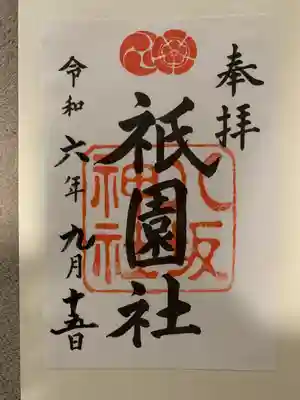 奉拝
祇園社
八坂神社
令和六年九月十五日